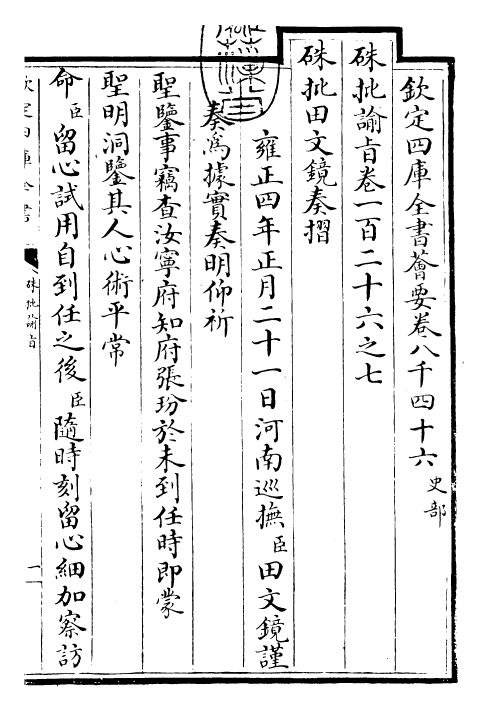 欽定四庫全書薈要卷八千四十六 史部
硃批諭旨卷一百二十六之七
硃批田文鏡奏摺
雍正四年正月二十一日河南巡撫臣田文鏡謹
奏爲據實奏明仰祈
聖鑒事竊查汝寧府知府張玢於未到任時即蒙
聖明洞鑒其人心術平常
命臣留心試用自到任之後臣隨時刻留心細加察訪
欽定四庫全書
硃批諭旨
一